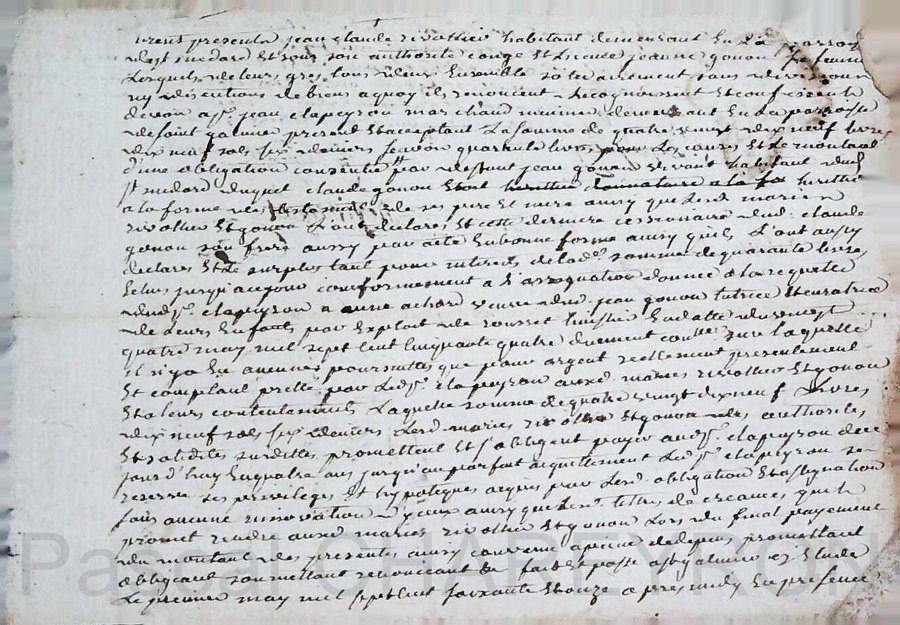 présents jean claude rivollier habitant demeurant En La parroisse
de st medard Et sous son authorité congé Et Licence jeanne gonon sa femme
Lesquels de leurs grés tous deux Ensemble solidairement sans division
ny discutions de biens a quoy ils renoncent Recognoissent Et confessent
devoir a sr. jean clapeyron marchand demeurant En La parroisse
de saint present Et acceptant La somme de quatre vingt dix neuf livres
dix neuf sols six deniers scavoir quarante livres pour Les causes Et Le montant
d'une obligation consentie par deffunt jean gonon vivant habitant dud.
st medard duquel claude gonon Etoit heritier donnataire a la heritier
a la forme des testaments de ses pere Et mere ainsy que Lesd. mariés
rivollier Et gonon L'ont declaré Et cette derniere cessionnaire dud. claude
gonon son frere aussy par acte En bonne forme ainsy quils L'ont aussy
declaré Et Le surplus tant pour interets de lad. somme de quarante livres
Echus jusqu'aujour conformement a L'assignation donnée a la requete
dudt. sr. clapeyron a anne achard veuve dud. jean gonon tutrice Et curatrice
de leurs Enfants par Exploit de rousset huissier En datte du vingt
quatre may mil sept cent cinquante quatre duement conllé sur laquelle
il n'ya Eu aucunes poursuittes que pour argent reellement presentement
Et comptant presté par Ledt. sr. clapeyron auxd. mariés rivollier Et gonon
Et a leurs contentements Laquelle somme de quatre vingt dix neuf Livres
dix neuf sols six deniers Lesd. mariés rivollier Et gonon des authorités
Et solidités susdittes promettent Et s'obligent payer audt. sr. clapeyron dece
jourd'huy En quatre ans jusqu'au parfait aquittement Ledt. sr. clapeyron se
reserve ses privileges Et hypoteques acquis par Lesd. obligation Et assignation
sans aucune innovation d'yceux ainsy que Les titres de creances quil
promet rendre auxd. mariés rivollier Et gonon Lors du final payement
du montant des presentes ainsy convenu a peine de depens promettant
obligeant soumettant renoncant &c fait Et passé a st galmier Ez Etude
Le premier may mil sept cent soixante Et onze apres midy En presence
Pascal CHAPEYRON